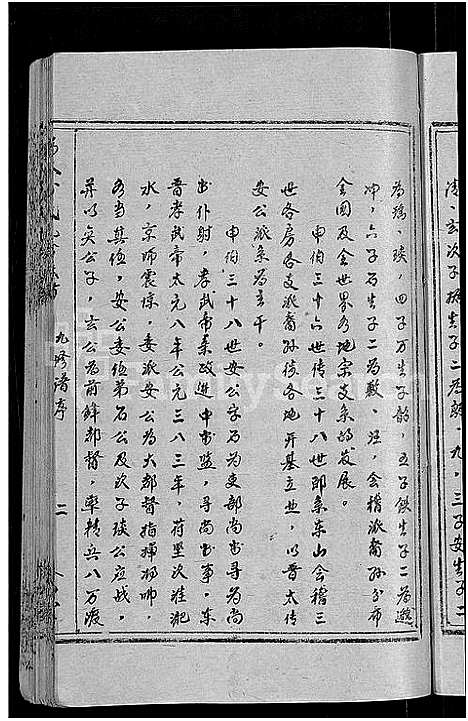 清、玄次子 生子二 、九、三子安生子二
为瑶、琰，四子万生子韵，五子铁生子二为邈
冲，六子石生子二为 、 ，会稽派裔孙分布
全国及全世界各地宗支系的发展。
申伯三十六世传三十八世即系东山会稽三
世各房各支派裔孙徙各地开基立业，以晋太傅
安公派系为主干。
申伯三十八世安公字石为吏部尚书寻为尚
书仆射，孝武帝系改进中书监，寻尚书事，东
晋孝武帝太元八年公元三八三年，苻坚次淮淝
水，京师震惊，委派安公为大都督指挥 帅，
为当其位，安公委伍弟石公及次子琰公应战，
并以奕公子，玄公为前锋都督，率精兵八万渡
九修谱序
二
FamilySearch